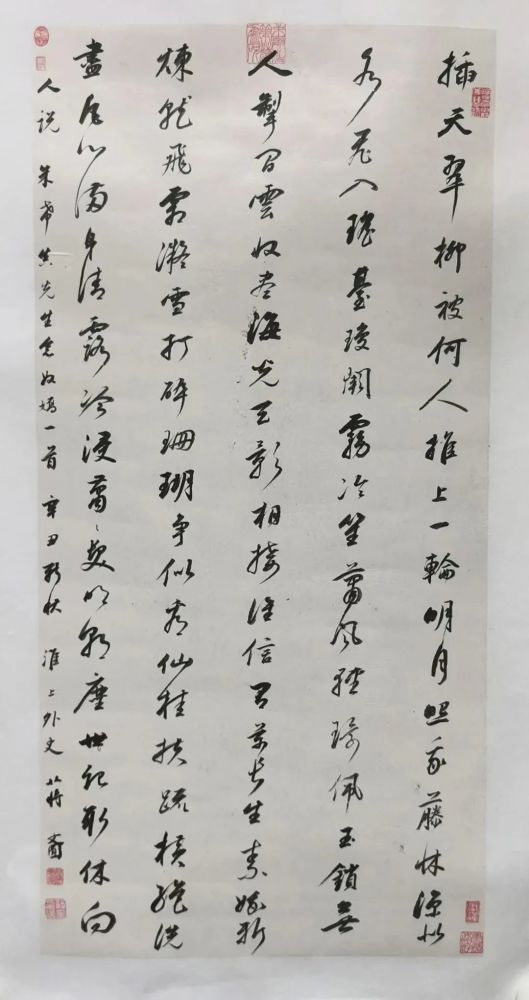 插天翠柳被何人推上一輪明月照我藤牀涼似
水飛入瑤臺瓊闕霧冷笙蕭風輕環佩玉鎖無
人掣閒雲收盡海光天影相接誰信有藥長生素娥新
煉就飛霜凝雪打碎珊瑚爭似看仙桂扶疏橫絕洗
盡凡心滿身清露冷浸蕭〻髮明朝塵世記取休向
人說 朱希真先生念奴嬌一首 辛丑新秋 淮上外史 蔣